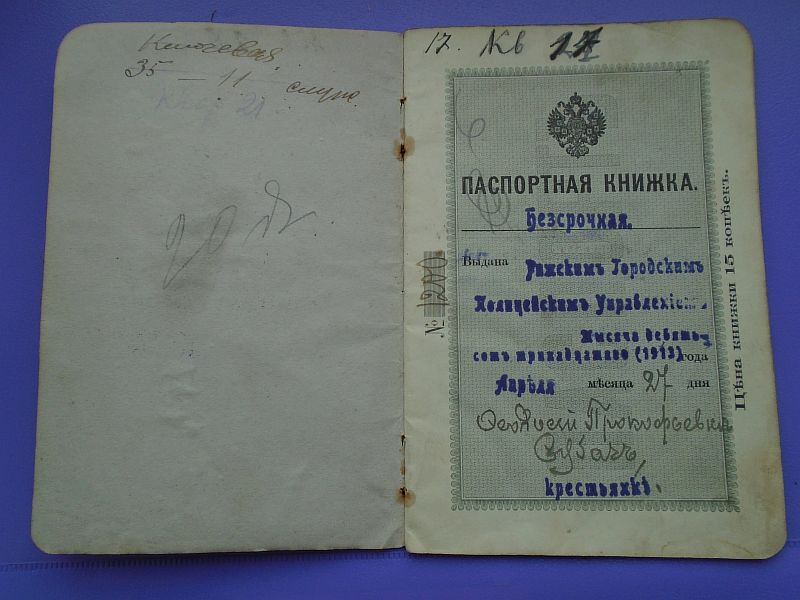 Ключевая
35 — 11 —
21
12. Кв 17
ПАСПОРТНАЯ КНИЖКА.
Безсрочная.
Выдана Рижскимъ Городскимъ
Полицейскимъ Управленіемъ
Тысяча девять-
сотъ тринадцатаго (1913) года
Апрѣля мѣсяца 27 дня
Прокофьевнѣ
крестьянкѣ.
№ 1200
Цѣна книжки 15 копѣекъ.